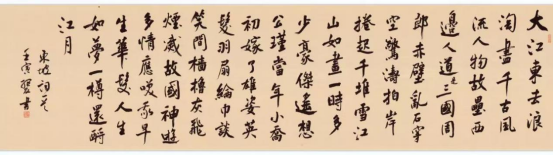 大江東去浪
淘盡千古風
流人物故壘西
邊人道是三國周
郎赤壁亂石穿
空驚濤拍岸
捲起千堆雪江
山如畫一時多
少豪傑遙想
公瑾當年小喬
初嫁了雄姿英
發羽扇綸巾談
笑間檣櫓灰飛
煙滅故國神遊
多情應笑我早
生華髮人生
如夢一樽還酹
江月
東坡詞
壬寅 書